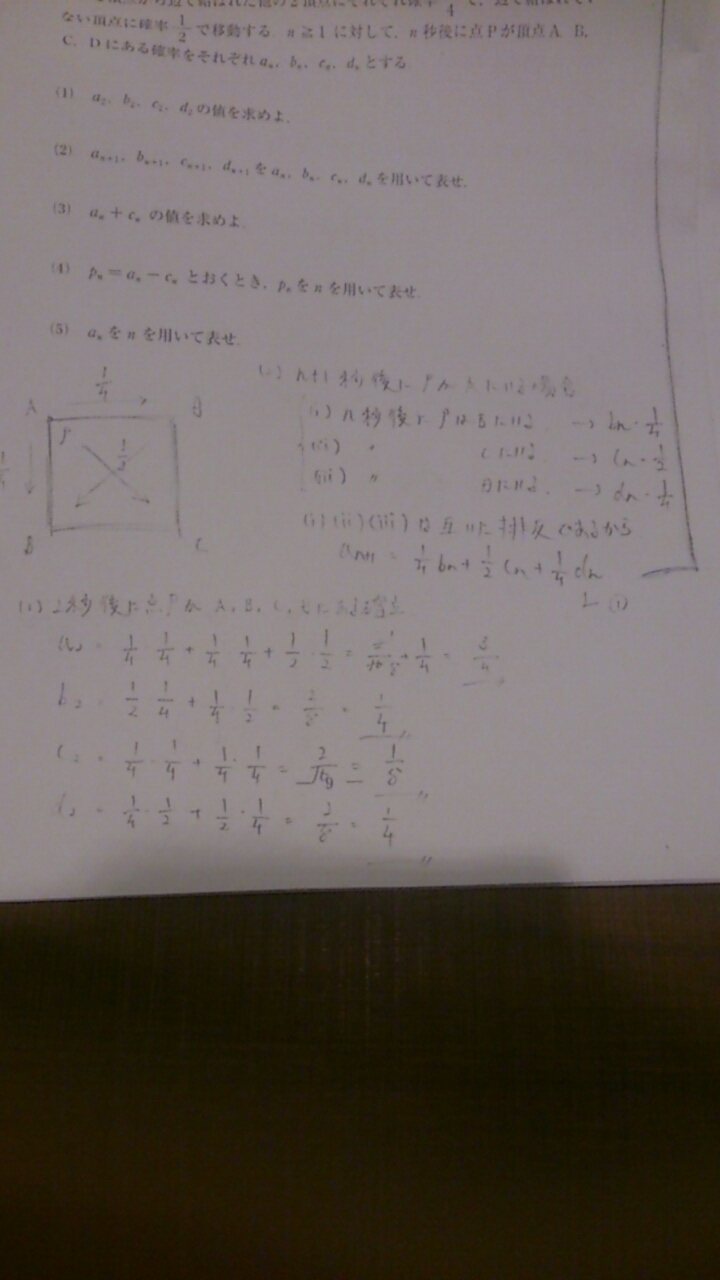 頂点から辺で結ばれた他の2頂点にそれぞれ確率 1/4 で、辺で結ばれてい
ない頂点に確率 1/2 で移動する。n≧1 に対して、n 秒後に点Pが頂点A、B、
C、Dにある確率をそれぞれ aₙ、bₙ、cₙ、dₙ とする。
(1) a₂、b₂、c₂、d₂ の値を求めよ。
(2) aₙ₊₁、bₙ₊₁、cₙ₊₁、dₙ₊₁ を aₙ、bₙ、cₙ、dₙ を用いて表せ。
(3) aₙ + cₙ の値を求めよ。
(4) pₙ = aₙ − cₙ とおくとき、pₙ を n を用いて表せ。
(5) aₙ を n を用いて表せ。
1/4
A
P
1/2
1/4
B
C
n+1秒後にPがAにいる場合
(i) n秒後にPはBにいる → bn・1/4
(ii) 〃 Cにいる → Cn・1/2
(iii) 〃 Dにいる → dn・1/4
(i)(ii)(iii)は互いに排反であるから
an+1 = 1/4 bn + 1/2 Cn + 1/4 dn
①
(1) 2秒後に点PがA, B, C, Dにある
= 1/4 1/4 + 1/4 1/4 + 1/2・1/2 = + 1/4 = 3/8
b₂ = 1/2・1/4 + 1/4・1/2 = 2/8 = 1/4
C₂ = 1/4・1/4 + 1/4・1/4 = = 1/8
d₂ = 1/4・1/2 + 1/2・1/4 = 2/8 = 1/4